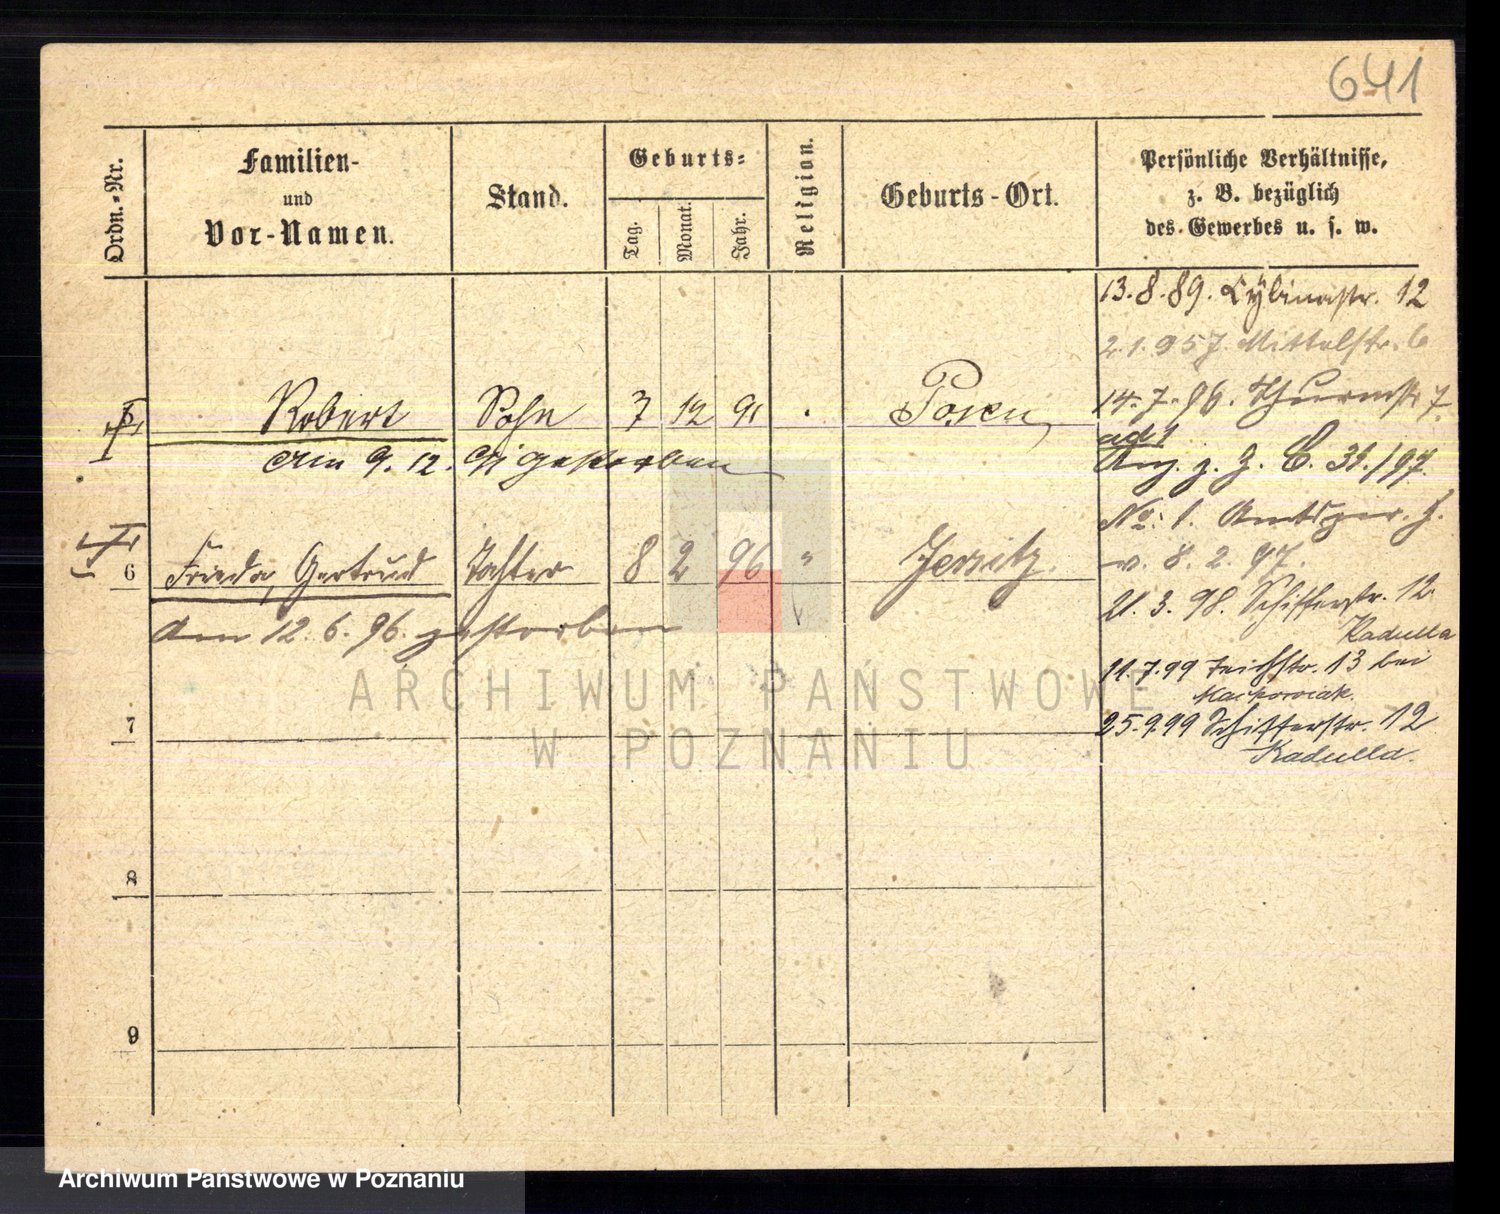 641
Ordn.-Nr.
Familien-
und
Vor-Namen.
Stand.
Geburts-
Tag.
Monat.
Jahr.
Religion.
Geburts-Ort.
Persönliche Verhältnisse,
z. B. bezüglich
des Gewerbes u. s. w.
13.8.89. Cybinastr. 12
2.1.95 Mittelstr. 6
14.7.96. Thurmstr 7
Robert Sohn 7 12 91 Posen
am 9.12.91 gestorben
ad 1
Anz. z. J. C. 31./97.
No: 1. Amtsger. J.
v. 8. 2. 97.
6 Frieda, Gertrud Tochter 8 2 96 " Jersitz.
am 12.6.96. gestorben
21. 3. 98. Schifferstr. 12
Kadulla
11.7.99 Teichstr. 13 bei
Maćkowiak.
25.9.99 Schifferstr. 12
Kadulla.
7
8
9
ARCHIWUM PAŃSTWOWE
W POZNANIU
Archiwum Państwowe w Poznaniu